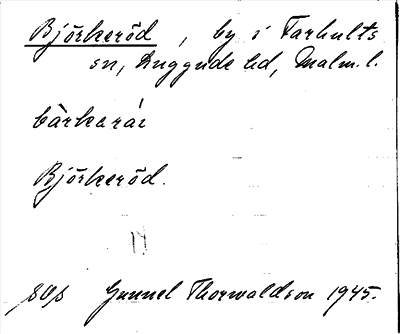 Björkeröd, by i Farhults
sn, Luggude hd, Malm. l.
bàrkarár
Björkeröd.
Gunnel Thorwaldson 1945.